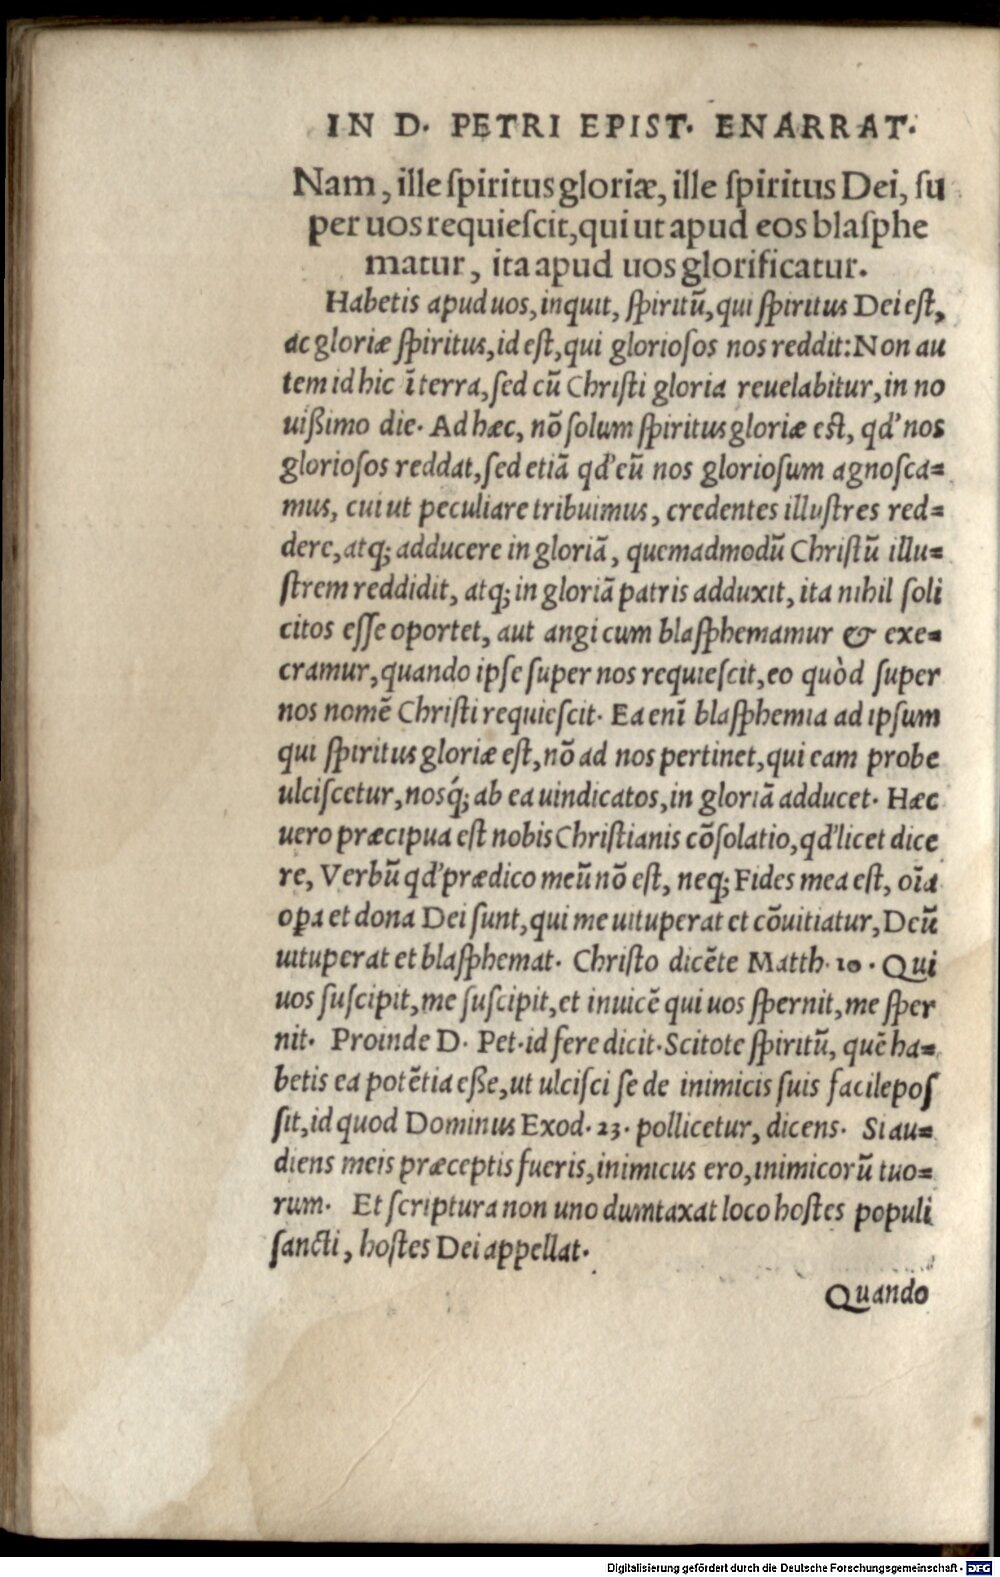 IN D. PETRI EPIST. ENARRAT.
Nam, ille ſpiritus gloriæ, ille ſpiritus Dei, ſu
per uos requieſcit, qui ut apud eos blaſphe
matur, ita apud uos glorificatur.
Habetis apud uos, inquit, ſpiritũ, qui ſpiritus Dei eſt,
ac gloriæ ſpiritus, id eſt, qui glorioſos nos reddit: Non au
tem id hic ĩ terra, ſed cũ Chriſti gloria reuelabitur, in no
uißimo die. Ad hæc, nõ ſolum ſpiritus gloriæ eſt, qd' nos
glorioſos reddat, ſed etiã qd' eũ nos glorioſum agnoſca=
mus, cui ut peculiare tribuimus, credentes illuſtres red=
dere, atq; adducere in gloriã, quemadmodũ Chriſtũ illu=
ſtrem reddidit, atq; in gloriã patris adduxit, ita nihil ſoli
citos eſſe oportet, aut angi cum blaſphemamur & exe=
cramur, quando ipſe ſuper nos requieſcit, eo quòd ſuper
nos nomẽ Chriſti requieſcit. Ea enĩ blaſphemia ad ipſum
qui ſpiritus gloriæ eſt, nõ ad nos pertinet, qui eam probe
ulciſcetur, nosq́; ab ea uindicatos, in gloriã adducet. Hæc
uero præcipua eſt nobis Chriſtianis cõſolatio, qd' licet dice
re, Verbũ qd' prædico meũ nõ eſt, neq; Fides mea eſt, oĩa
oꝑa et dona Dei ſunt, qui me uituperat et cõuitiatur, Deũ
uituperat et blaſphemat. Chriſto dicẽte Matth. 10. Qui
uos ſuſcipit, me ſuſcipit, et inuicẽ qui uos ſpernit, me ſper
nit. Proinde D. Pet. id fere dicit. Scitote ſpiritũ, quẽ ha=
betis ea potẽtia eße, ut ulciſci ſe de inimicis ſuis facile poſ
ſit, id quod Dominus Exod. 23. pollicetur, dicens. Si au=
diens meis præceptis fueris, inimicus ero, inimicorũ tuo=
rum. Et ſcriptura non uno dumtaxat loco hoſtes populi
ſancti, hoſtes Dei appellat.
Quando
Digitalisierung gefördert durch die Deutsche Forschungsgemeinschaft - DFG